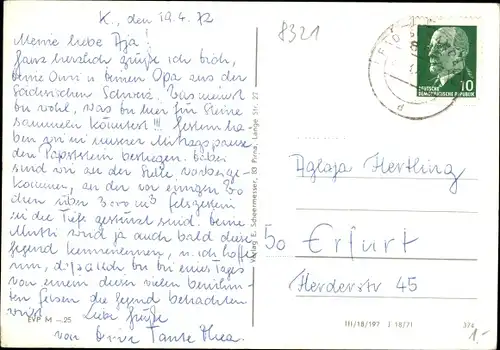 K., den 19.4.72
8321
Meine liebe Aja!
Ganz herzlich grüße ich dich,
deine Omi u. deinen Opa aus der
Sächsischen Schweiz. Was meinst
du wohl, was du hier für Steine
sammeln könntest!!! Gestern ha-
ben wir in unserer Mittagspause
den Papststein bestiegen. Dabei
sind wir an der Stelle vorbeige-
kommen, an der vor einigen Wo
chen über 3000 m³ Felsgestein
in die Tiefe gestürzt sind. Deine
Mutti wird ja auch bald diese
Gegend kennenlernen, u. ich hoffe
nun, daß auch du eines Tages
von einem dieser vielen berühm-
ten Felsen die Gegend betrachten
wirst. Liebe Grüße
von Deiner Tante Thea.
EVP M -,25
Verlag E. Scheermesser, 83 Pirna, Lange Str. 27
DEUTSCHE
DEMOKRATISCHE REPUBLIK
10
d
Aglaja Hertling
50 Erfurt
Herderstr 45
III/18/197 J 18/71
374
1,-